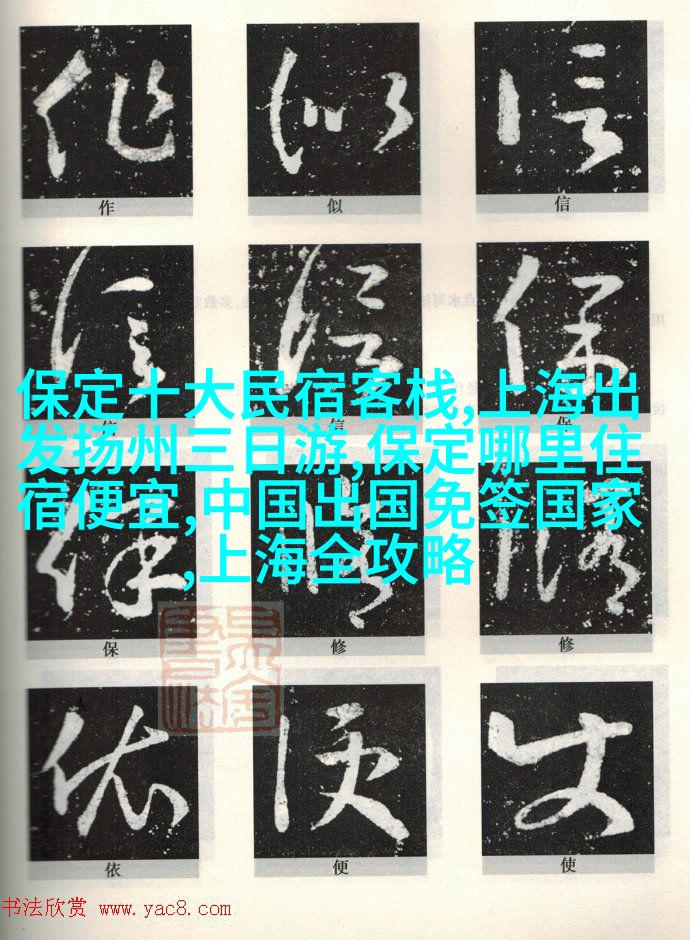 作 似 信
作 似 信
信 信 保
信 信 保
保定十大民宿客栈,上海出
发扬州三日游,保定哪里住
宿便宜,中国出国免签国家
,上海全攻略
保 修 修
保 修 修
依 便 使
依 便 使
书法欣赏 www.yac8.com